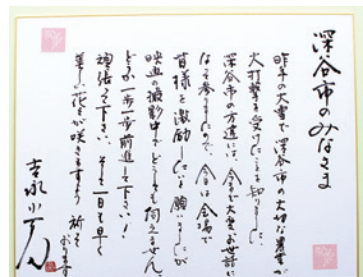 深谷市のみなさま
昨年の大雪で、深谷市の大切な農業が
大打撃を受けたことを知りました。
深谷市の方達には、今まで大変お世話に
なって参りましたので、今日は会場で
皆様を激励したいと願いましたが
映画の撮影中で、どうしても伺えません。
どうか一歩一歩前進して下さい!
頑張って下さい。そして一日も早く
美しい花々が咲きますよう 祈って
おります
吉永小百合